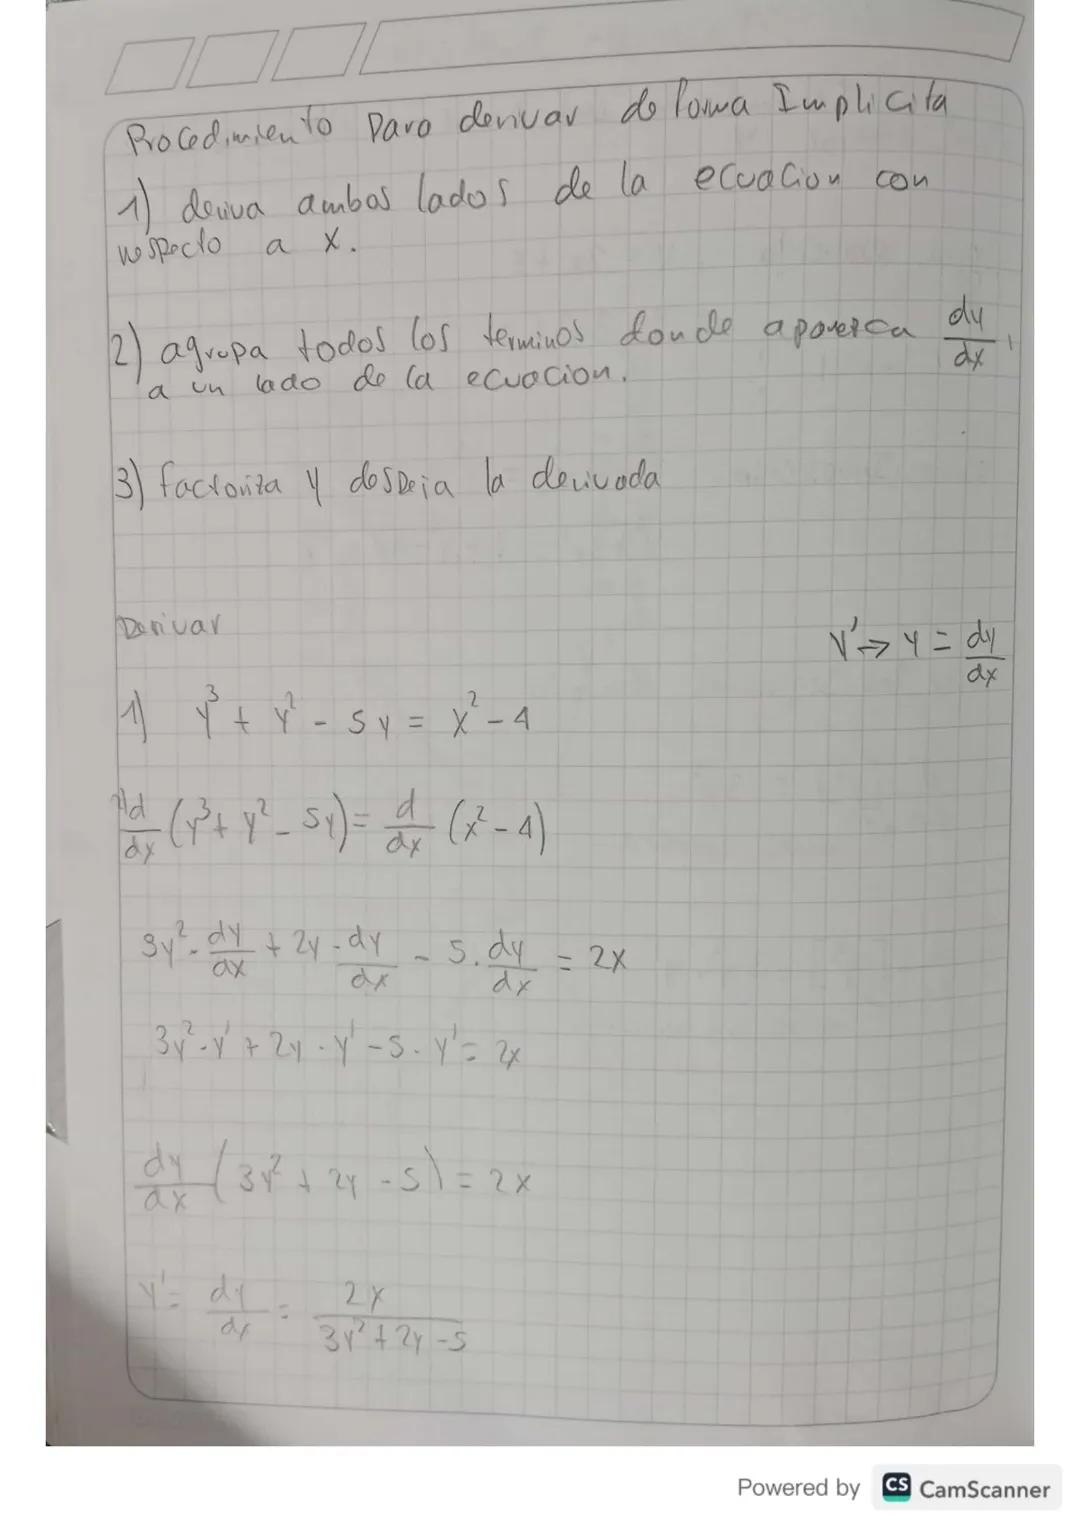 Procedimiento Para derivar de forma Implicita
1) deriva ambos lados de la ecuacion con
respecto a x.
2) agrupa todos los terminos donde aparesca dy/dx,
a un lado de la ecuacion.
3) factoriza y despeja la derivada
Derivar
y' → y = dy/dx
1) y³ + y² - 5y = x² - 4
d/dx (y³ + y² - 5y) = d/dx (x² - 4)
3y² · dy/dx + 2y · dy/dx - 5 · dy/dx = 2x
3y² · y' + 2y · y' - 5 · y' = 2x
dy/dx (3y² + 2y - 5) = 2x
y' = dy/dx = 2x/(3y² + 2y - 5)
Powered by CS CamScanner